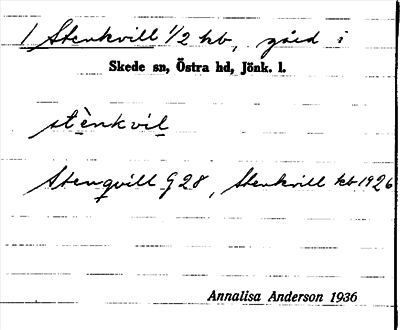 1 Stenkvill 1/2 hb, gård i
Skede sn, Östra hd, Jönk. l.
stènkvil
Stenqvill G28, Stenkvill kb 1926
Annalisa Anderson 1936